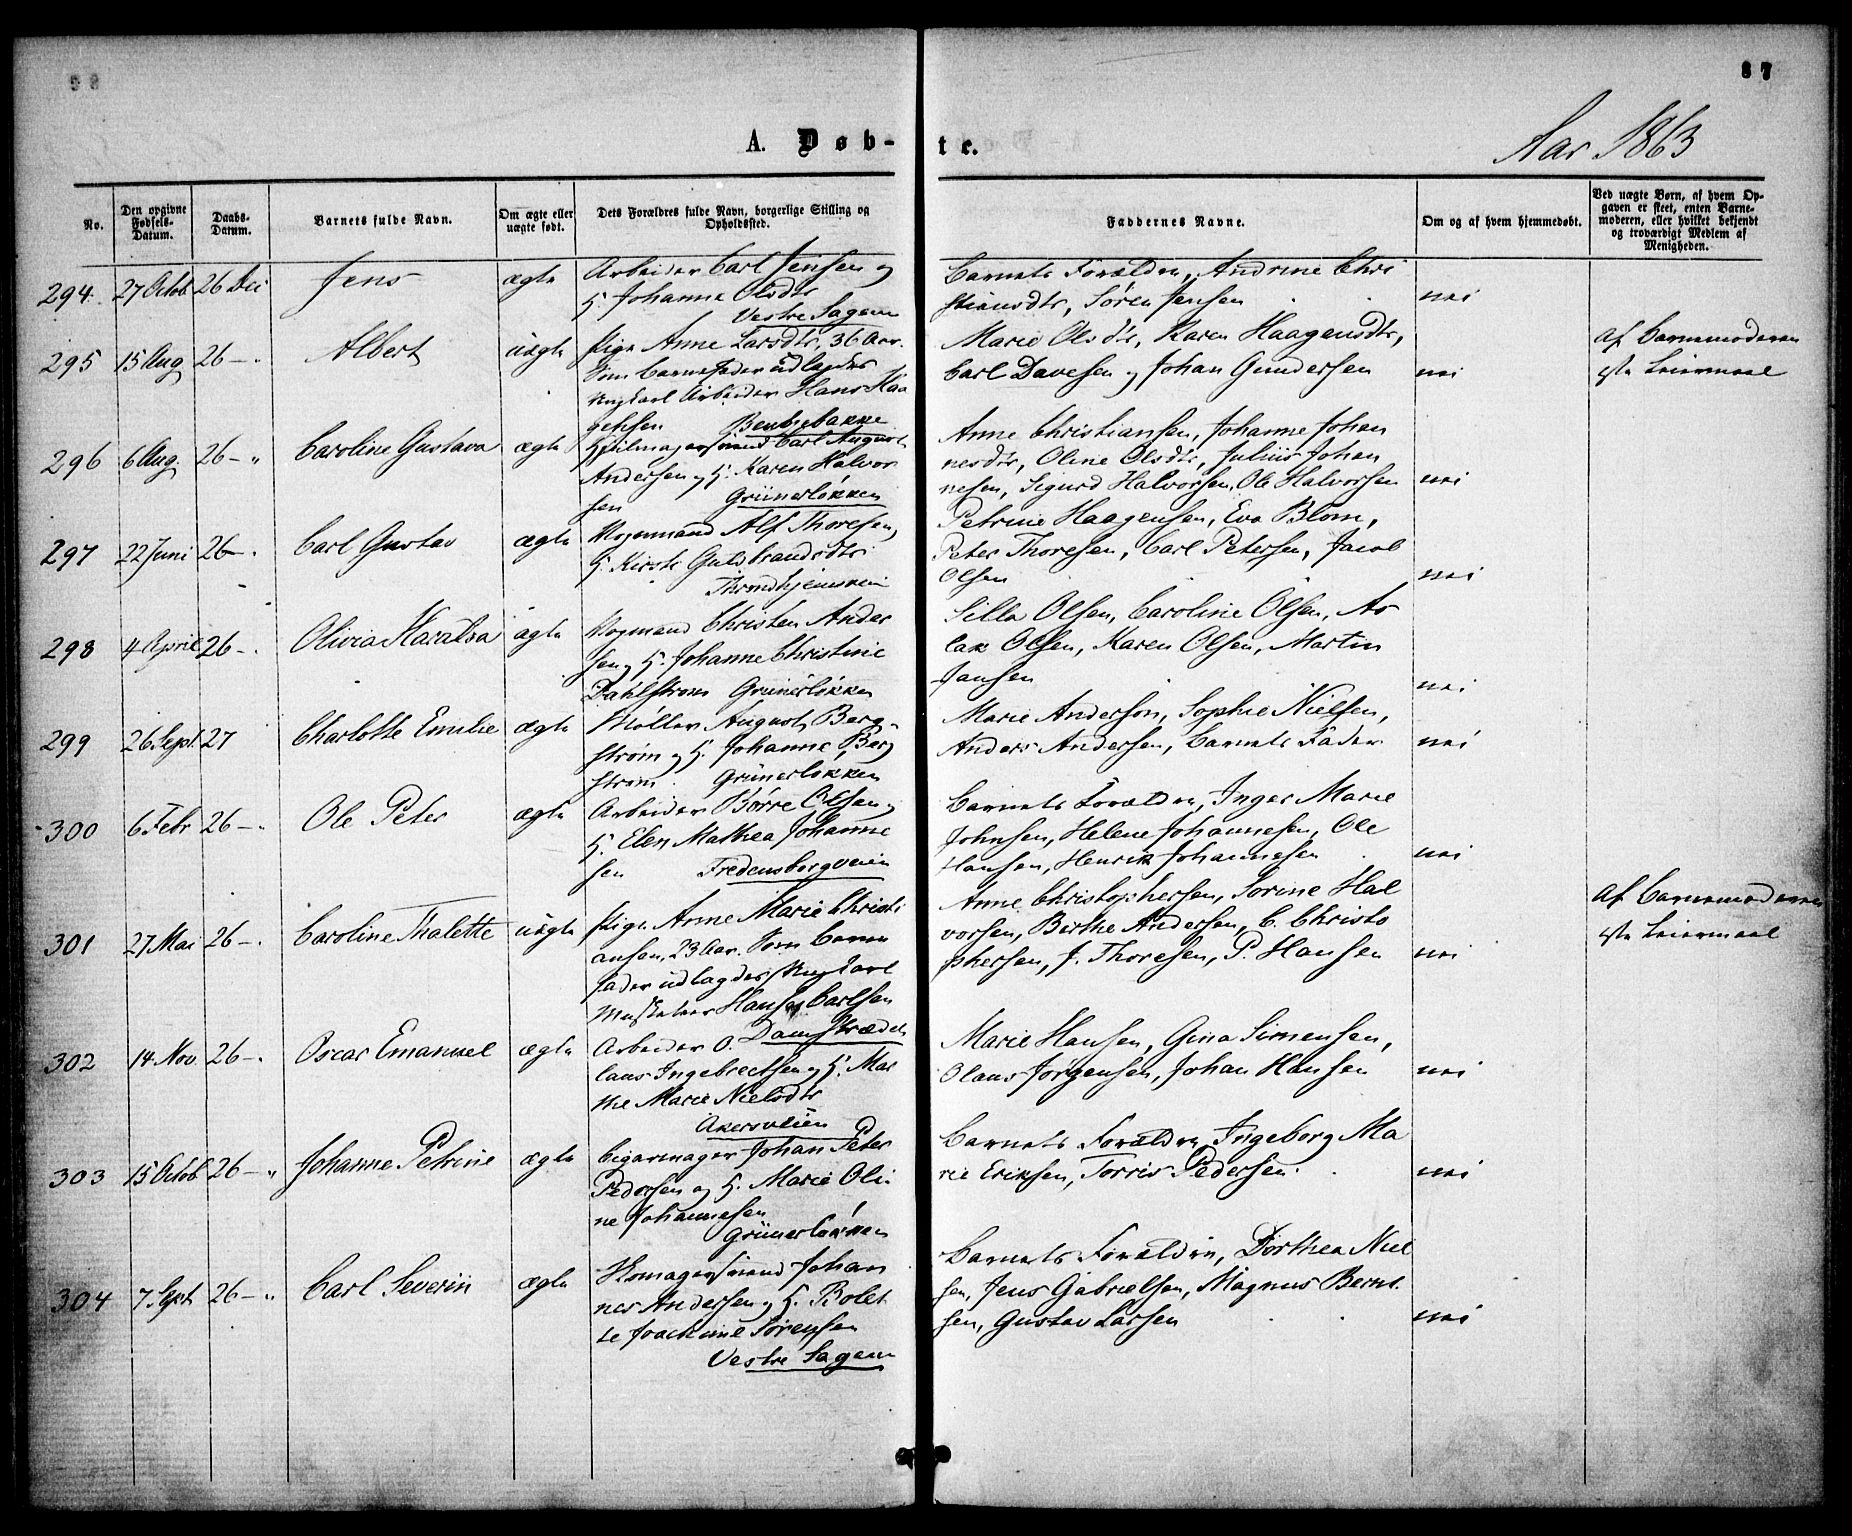 87
A. Døb-
te.
Aar 1863
No.
Den opgivne Fødsels-Datum.
Daabs-Datum.
Barnets fulde Navn.
Om ægte eller uægte født.
Dets Forældres fulde Navn, borgerlige Stilling og Opholdssted.
Faddernes Navne.
Om og af hvem hjemmedøbt.
Ved uægte Børn, af hvem Opgaven er skeet, enten Barnemoderen, eller hvilket bekjendt og troværdigt Medlem af Menigheden.
294. 27 Octob 26 Dec Jens ægte
Arbeider Carl Jensen og
H. Johanne Olsdtr
Vestre Sagene
Barnets Forældre, Andrine Chri
stiansdtr, Søren Jensen
nei
295 15 Aug 26 - Albert uægte
Pige Anne Larsdtr, 36 Aar.
Som Barnefader udlagdes
Ungkarl Arbeider Hans Haa
gensen Bentsebakke
Marie Olsdtr, Karen Haagensdtr,
Carl Davesen og Johan Gundersen
nei
af Barnemoderen
1ste Leiermaal
296 6 Aug 26 - " Caroline Gustava ægte
Hjulmagersvend Carl August
Andersen og H. Karen Halvor
sen Grünerløkken
Anne Christiansen, Johanne Johan
nesdtr, Oline Olsdtr, Julius Johan
nesen, Sigurd Halvorsen, Ole Halvorsen
nei
297 22 Juni 26 - Carl Gustav ægte
Vognmand Alf Thoresen,
H. Kirsti Guldbrandsdtr
Throndhjemsveien
Petrine Haagensen, Eva Blom,
Peter Thoresen, Carl Petersen, Jacob
Olsen
nei
298 4 April 26 - Olivia Haralda ægte
Vogmand Christen Ander
sen og H. Johanne Christine
Dahlstrøm Grünerløkken
Silla Olsen, Caroline Olsen, As
lak Olsen, Karen Olsen, Martin
Jansen
nei
299 26 Sept. 27 Charlotte Emilie ægte
Møller August Berg-
strøm og H. Johanne Berg
strøm Grünerløkken
Marie Anderson, Sophie Nielsen,
Anders Andersen, Barnets Fader
nei
300 6 Febr 26 - Ole Peter ægte
Arbeider Børre Olsen og
H. Elen Mathea Johanne
sen Fredensborgveien
Barnets Forældre, Inger Marie
Johnsen, Helene Johannesen, Ole
Hansen, Henrik Johannesen
nei
301 27 Mai 26 - Caroline Thalette uægte
Pige Anne Marie Christi
ansen, 23 Aar. Som Barne
fader udlagdes Ungkarl
Musketeer Hans Carlsen
Damstrædet
Anne Christophersen, Sorine Hal
vorsen, Berthe Andersen, C. Christo
phersen, J. Thoresen, P. Hansen
nei
af Barnemoderen
1ste Leiermaal
302 14 Nov. 26 - Oscar Emanuel ægte
Arbeider O
laus Ingebretsen og H. Mar
the Marie Nielsdtr
Akersveien
Marie Hansen, Gina Simensen,
Olaus Jørgensen, Johan Hansen
nei
303 15 Octob 26 - " Johanne Petrine ægte
Cigarmager Johan Peter
Pedersen og H. Marie Oli
ne Johannesen
Grünerløkken
Barnets Forældre, Ingeborg Ma
rie Eriksen, Torris Pedersen
nei
304 7. Sept 26 - " Carl Severin ægte
Skomagersvend Johan
nes Andersen og H. Bolet
te Joachime Sørensen
Vestre Sagene
Barnets Forældre, Dorthea Niel
sen, Jens Gabrielsen, Magnus Bernt
sen, Gustav Larsen
nei